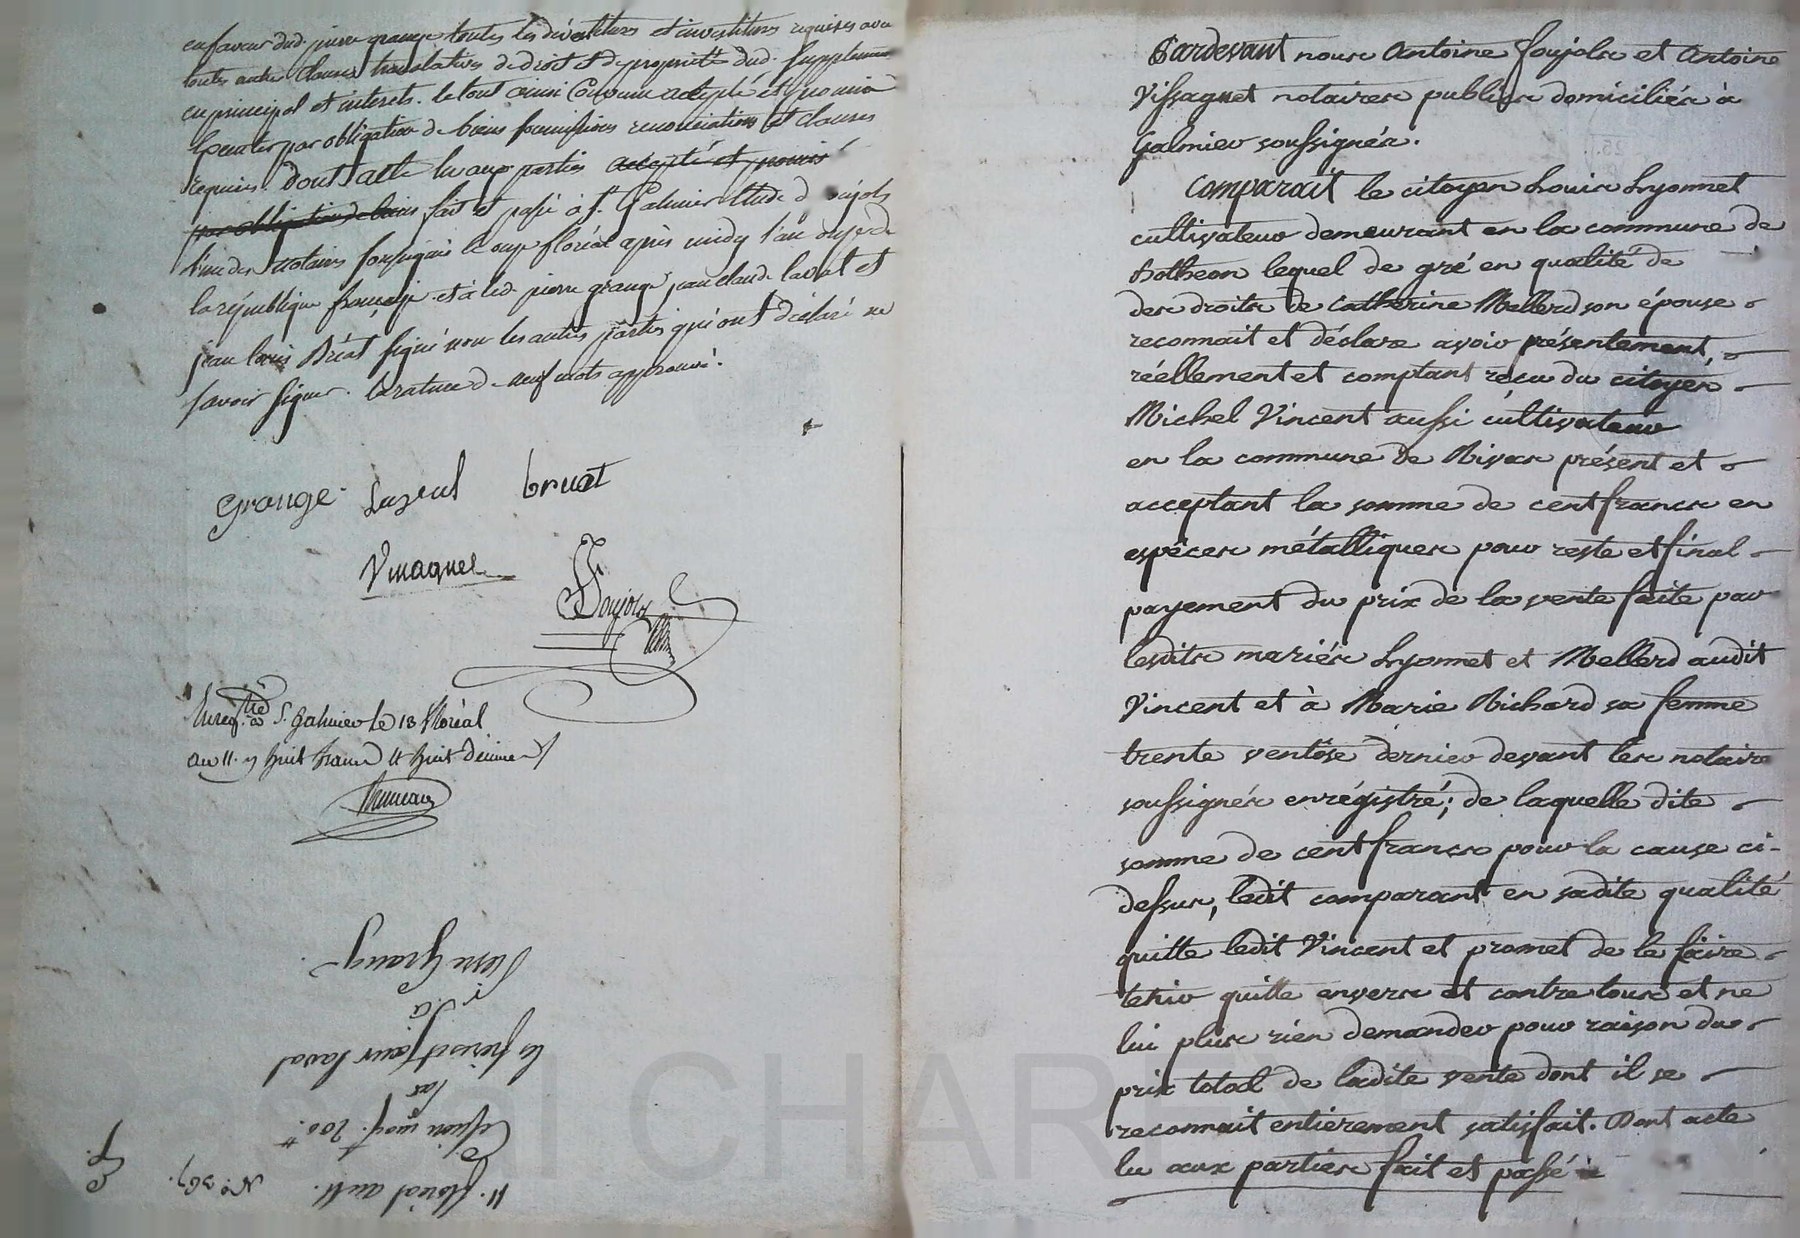 en faveur dud. pierre grange toutes les dévetitures et investitures requises avec
toutes autres clauses translatives de droit et de propriété dud. supplement
en principal et interets. le tout ainsi convenu accepté et promis
par obligation de biens soumissions renonciations et clauses
requises. Dont acte lu aux parties accepté et promis
par obligation de biens fait et passé à St. Galmier étude de Soujols
l'un des notaires soussignés le onze floréal après midy l'an onze de
la république française et à led. pierre grange, jean claude laval et
jean louis Bréat signé non les autres parties qui ont déclaré ne
savoir signer. la rature de neuf mots approuvé.
Grange
bruat
Vissaguet
Soujols
Enreg.tré à St. Galmier le 13 floréal
an 11. r huit francs et huit décimes
Pardevant nous Antoine Soujols et Antoine
Vissaguet notaires publics domiciliés à
Galmier soussignés.
Comparait le citoyen Louis Lyonnet
cultivateur demeurant en la commune de
Botheon lequel de gré en qualité de
des droits de Catherine Mellerd son épouse
reconnait et déclare avoir présentement,
réellement et comptant reçu du citoyen
Michel Vincent aussi cultivateur
en la commune de Rivas présent et
acceptant la somme de cent francs en
espèces métalliques pour reste et final
payement du prix de la vente faite par
lesdits mariés Lyonnet et Mellerd audit
Vincent et à Marie Richard sa femme
trente ventôse dernier devant les notaires
soussignés enrégistré; de laquelle dite
somme de cent francs pour la cause ci-
dessus, ledit comparant en sadite qualité
quitte ledit Vincent et promet de le faire
tenir quitte envers et contre tous et ne
lui plus rien demander pour raison du
prix total de ladite vente dont il se
reconnait entièrement satisfait. Dont acte
lu aux parties fait et passé à
11. floréal an 11. N.o 367.
Cession moy.t 200.#
par
les frères et sœur Laval
à
Pierre Grange
CHAREYRE